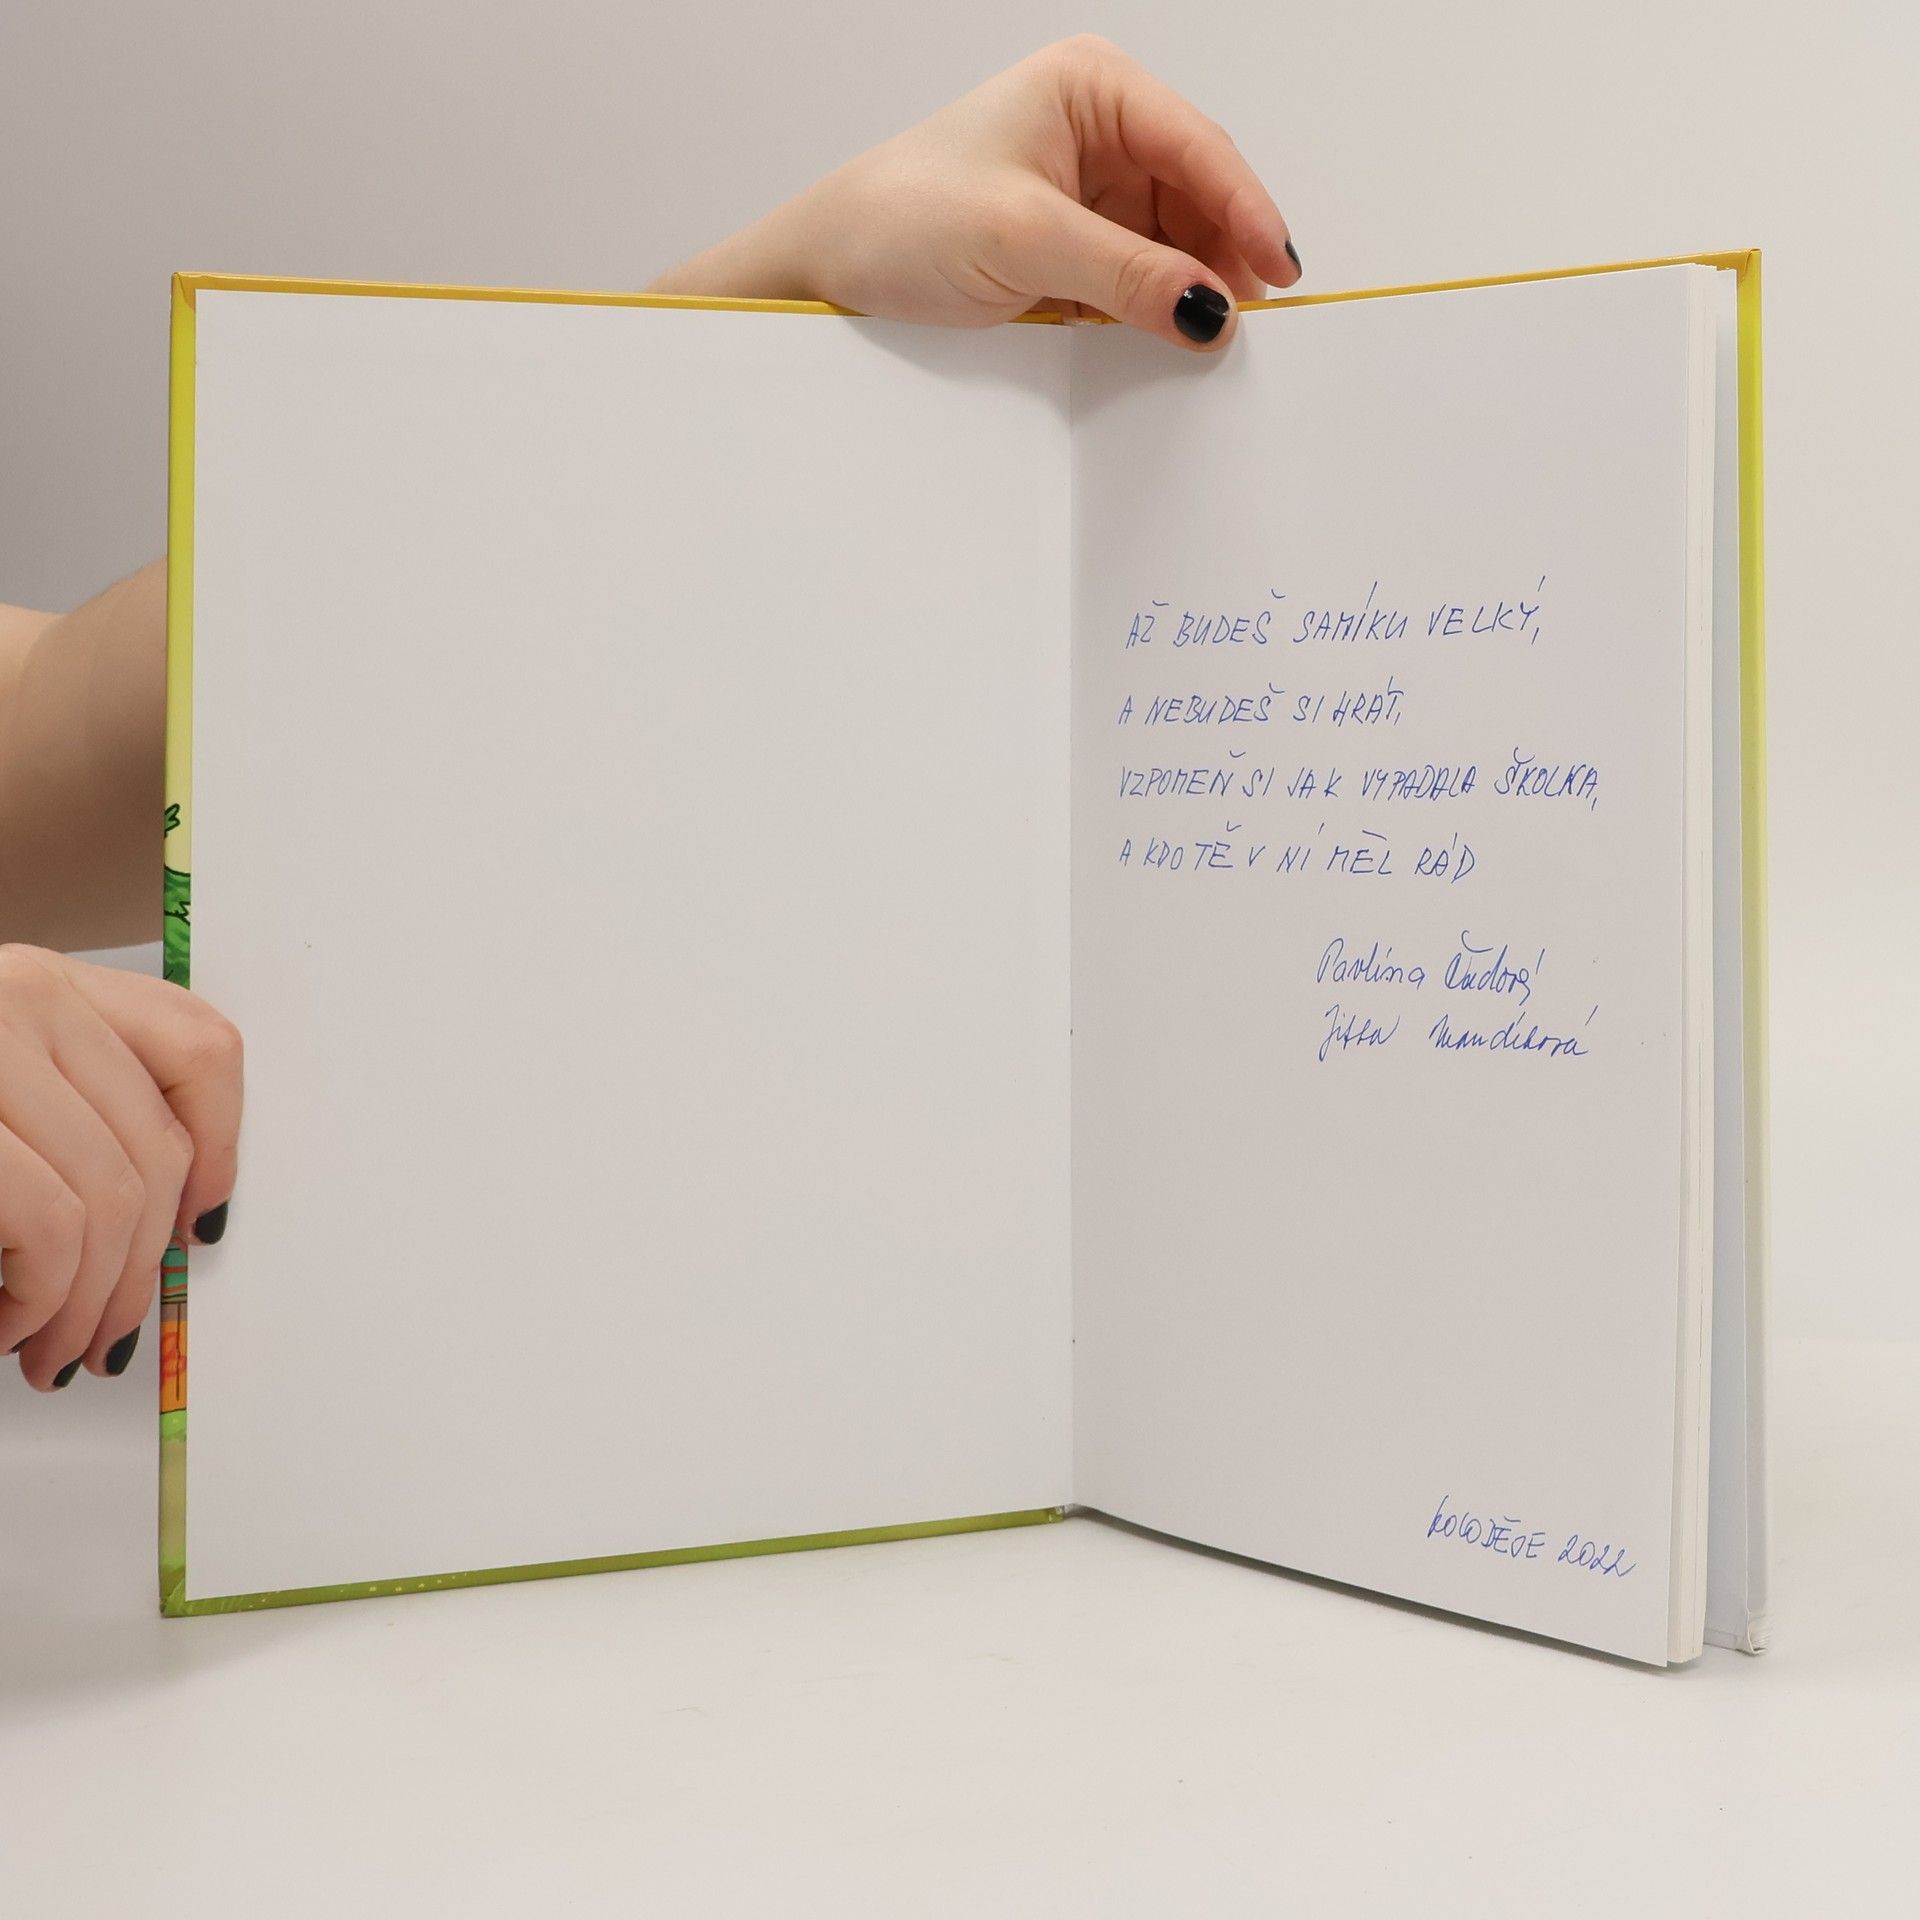 AŽ BUDEŠ SAMÍKU VELKÝ,
A NEBUDEŠ SI HRÁT,
VZPOMEŇ SI JAK VYPADALA ŠKOLKA,
A KDO TĚ V NÍ MĚL RÁD
Pavlína Čudová
Jitka Mandíková
KOLODĚJE 2022